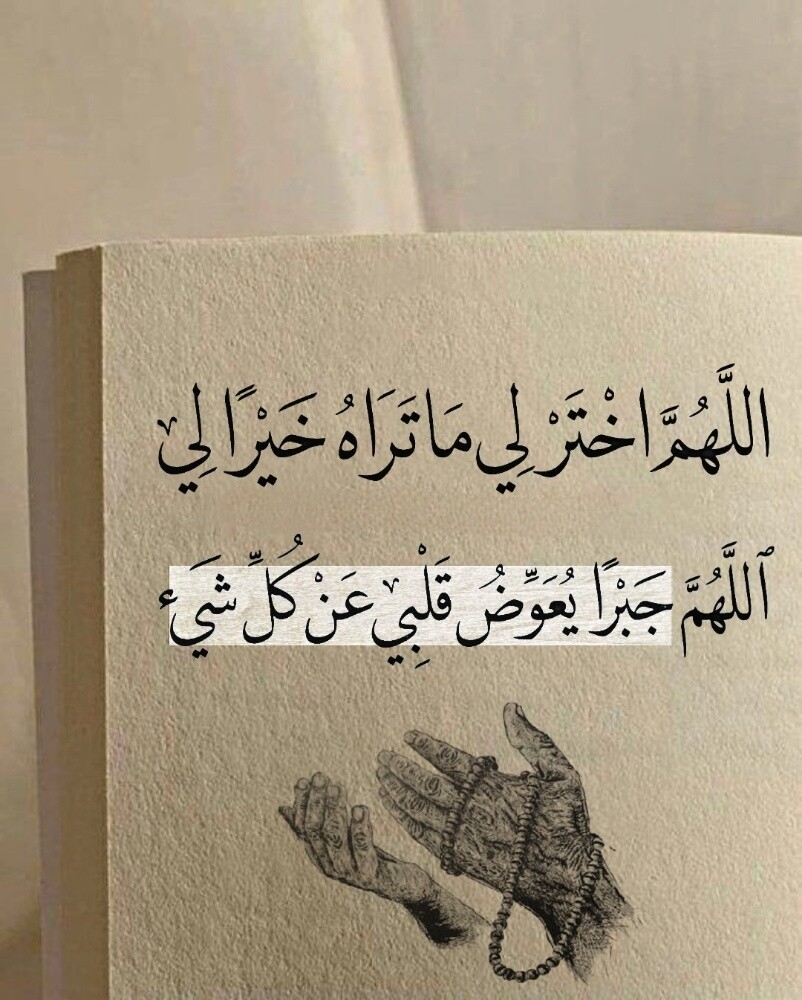 اللَّهُمَّ اخْتَرْ لِي مَا تَرَاهُ خَيْرًا لِي
ٱللَّهُمَّ جَبْرًا يُعَوِّضُ قَلْبِي عَنْ كُلِّ شَيْء